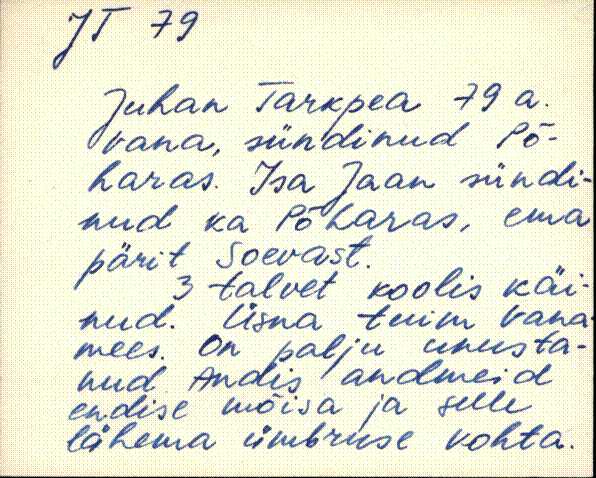 JT 79
Juhan Tarkpea 79 a.
vana, sündinud Põ-
haras. Isa Jaan sündi-
nud ka Põharas, ema
pärit Soevast.
3 talvet koolis käi-
nud. Üsna tuim vana-
mees. On palju unusta-
nud. Andis andmeid
endise mõisa ja selle
lähema ümbruse kohta.